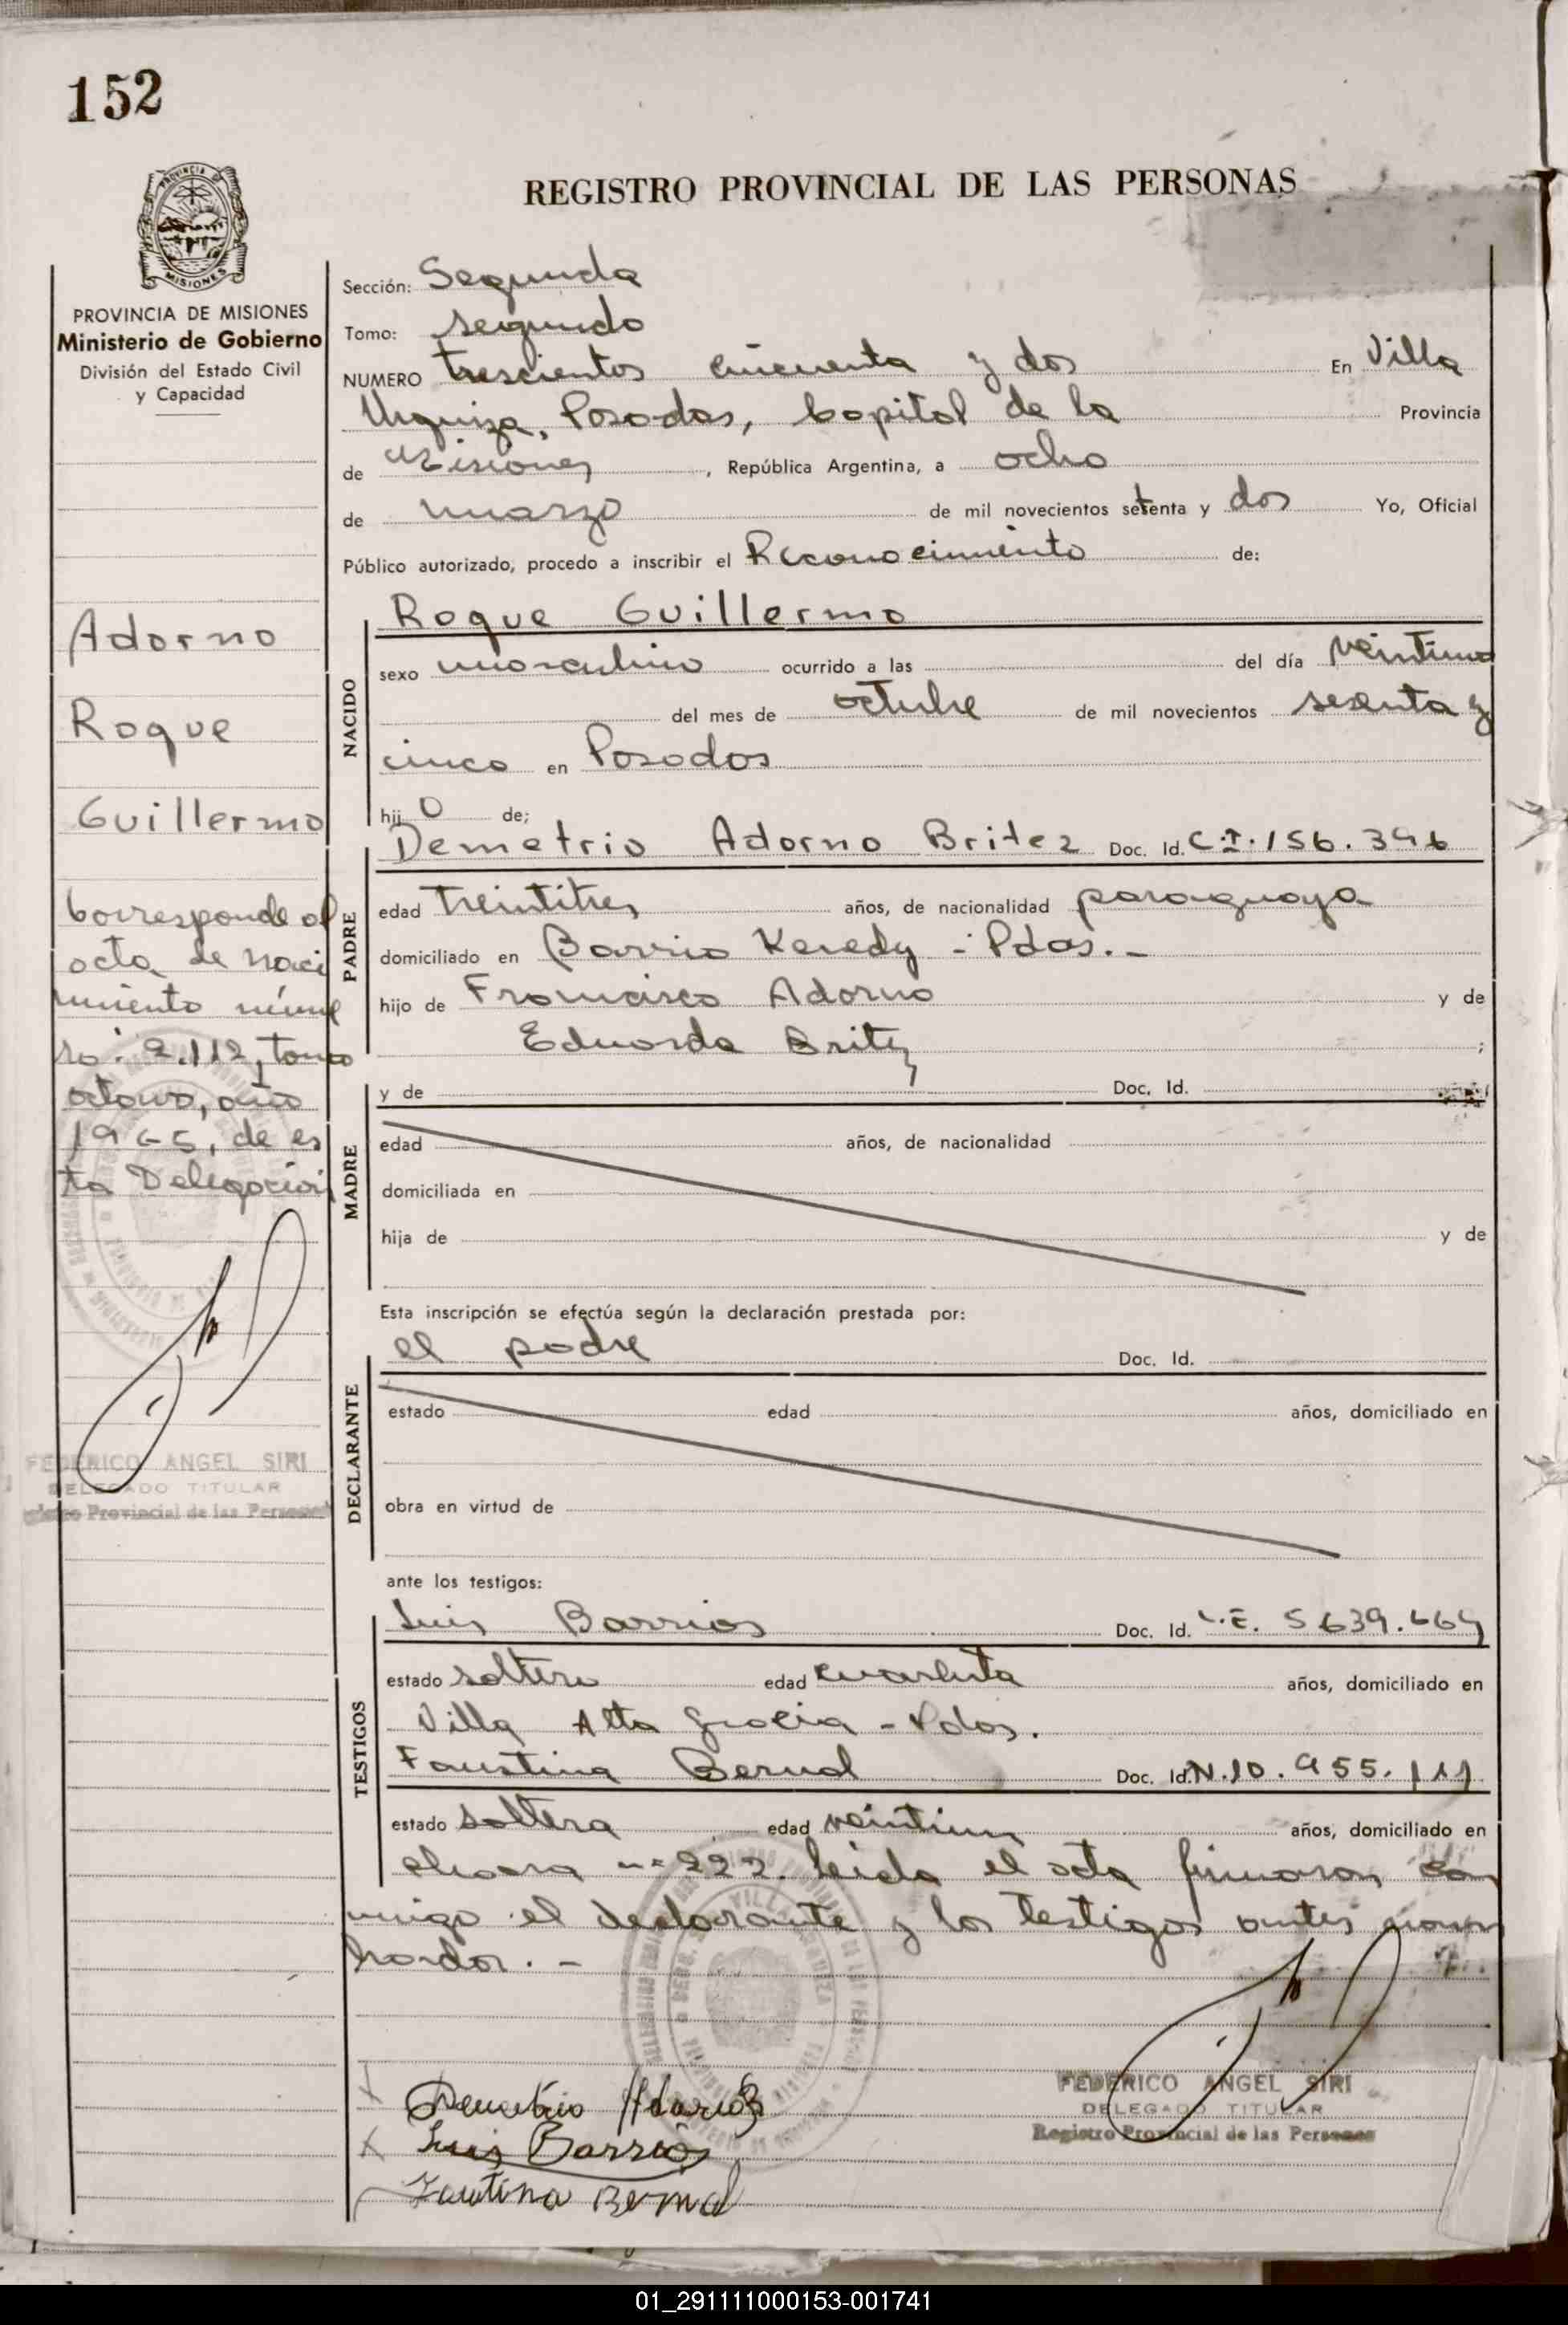 152
REGISTRO PROVINCIAL DE LAS PERSONAS
PROVINCIA DE MISIONES
Ministerio de Gobierno
División del Estado Civil
y Capacidad
Adorno
Roque
Guillermo
Corresponde al
acta de naci
miento núme
ro: 2.112, tomo
octavo, año
1965, de es
ta Delegación
FEDERICO ANGEL SIRI
DELEGADO TITULAR
Registro Provincial de las Personas
Sección: Segunda
Tomo: segundo
NUMERO trescientos cincuenta y dos En Villa
Urquiza, Posadas, Capital de la Provincia
de Misiones, República Argentina, a ocho
de marzo de mil novecientos setenta y dos Yo, Oficial
Público autorizado, procedo a inscribir el Reconocimiento de:
NACIDO
Roque Guillermo
sexo masculino ocurrido a las del día veintiuno
del mes de octubre de mil novecientos sesenta y
cinco en Posadas
hijo de;
PADRE
Demetrio Adorno Britez Doc. Id. C.I. 156.396
edad treintitres años, de nacionalidad paraguaya
domiciliado en Barrio Keredy - Pdas. -
hijo de Francisco Adorno y de
Eduarda Britez ;
MADRE
y de Doc. Id.
edad años, de nacionalidad
domiciliada en
hija de y de
Esta inscripción se efectúa según la declaración prestada por:
DECLARANTE
el padre Doc. Id.
estado edad años, domiciliado en
obra en virtud de
ante los testigos:
TESTIGOS
Luis Barrios Doc. Id. L.E. 5639.669
estado soltero edad cuarenta años, domiciliado en
Villa Alta Gracia - Pdas.
Faustina Bernal Doc. Id. N. 10.955.111
estado soltera edad veintiun años, domiciliado en
chacra nº 222. Leída el acta firmaron con
migo el declarante y los testigos antes nom
brados. -
Demetrio Adorno B
Luis Barrios
Faustina Bernal
FEDERICO ANGEL SIRI
DELEGADO TITULAR
Registro Provincial de las Personas
01_291111000153-001741